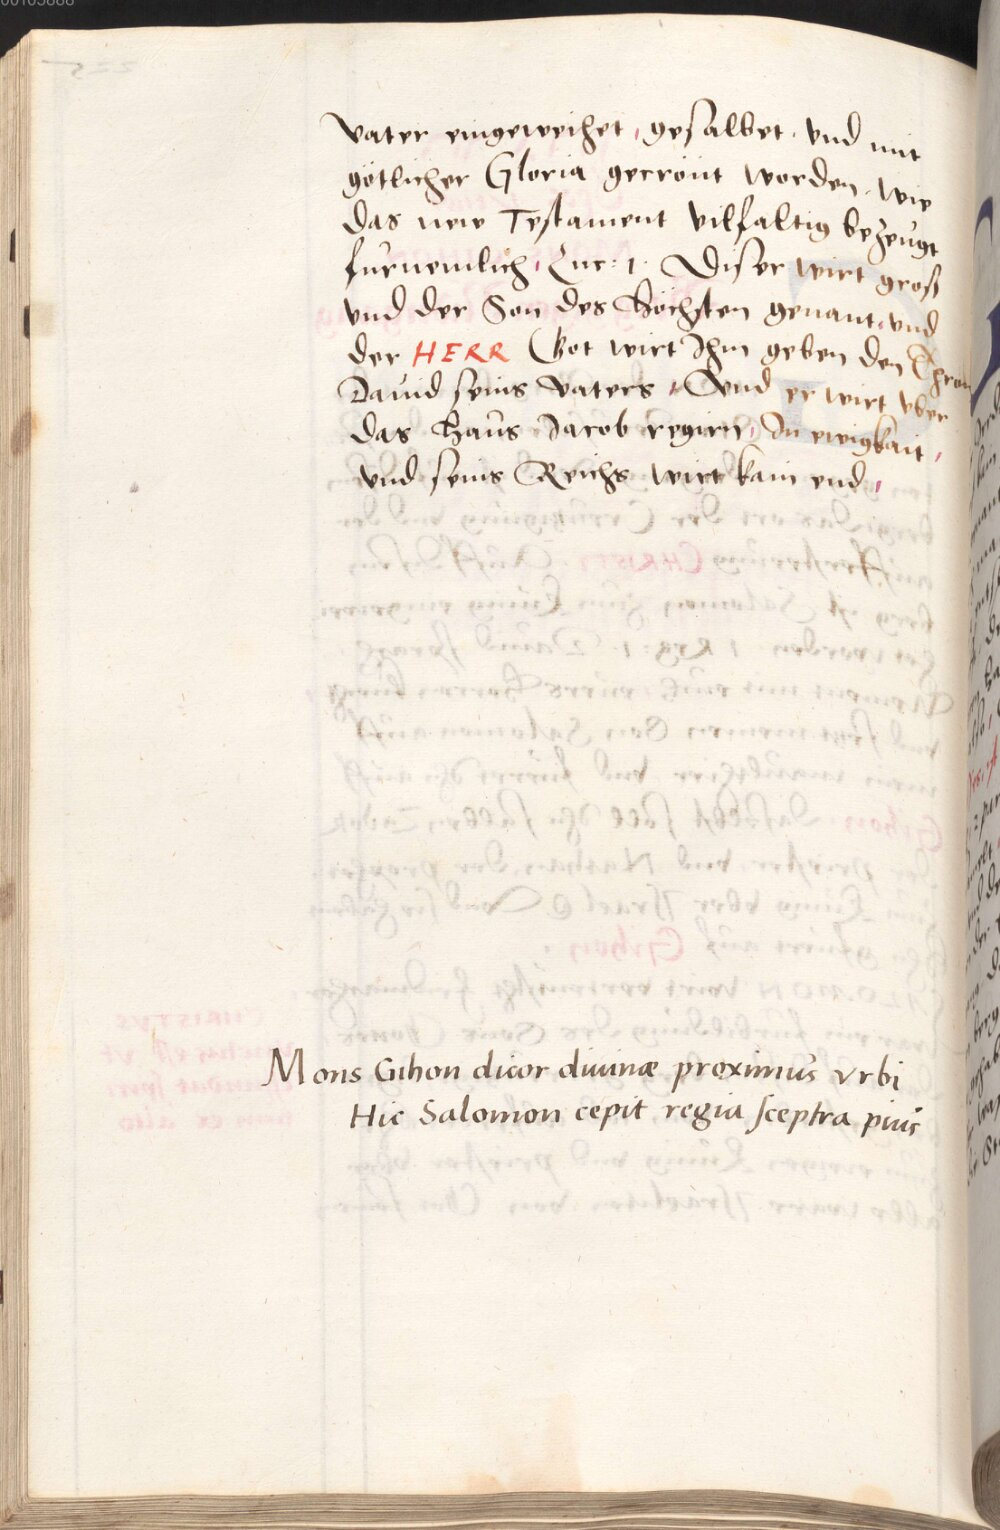 vater eingeweihet, gesalbet, vnd mit
götlicher Gloria gecrönt worden, wie
das new Testament vilfaltig bezeugt
furnemlich, Luc: 1. Diser wirt groß
vnd der Son des Höchsten genant, vnd
der HERR Got wirt Ihm geben den Thron
Dauid seins vaters, Vnd er wirt vber
das Haus Iacob regirn, In ewigkait,
vnd seins Reichs wirt kain end,
Mons Gihon dicor diuinæ proximus vrbi
Hic Salomon cepit regia sceptra pius